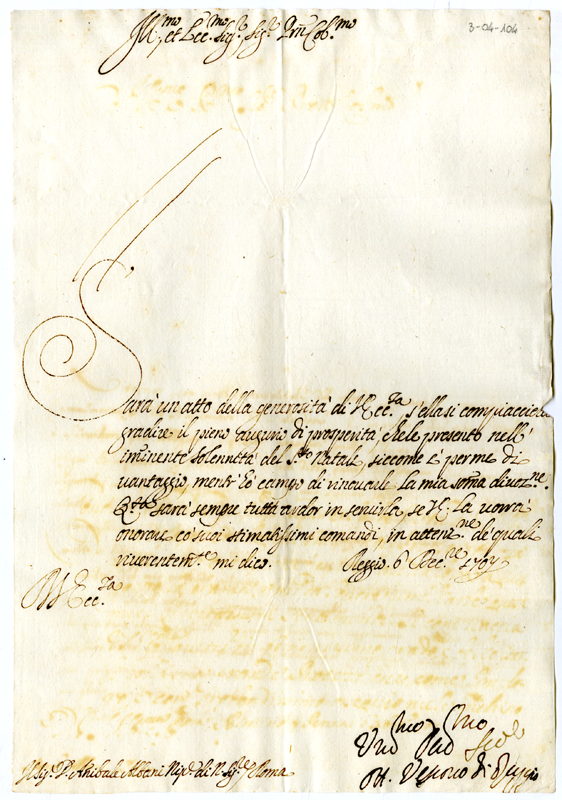 3-04-104
Ill.mo et Ecc.mo Sig.r Sig.r Pron Col.mo
Sarà un atto della generosità di V. Ecc.za s'ella si compiaccia
gradire il pieno augurio di prosperità che le presento nell'
imminente solennità del S.to Natale, siccome è per me di
vantaggio, mentr' hò campo di rinovarle la mia somma divoz.ne.
Q.ta sarà sempre tutt' ardor in servirla, se V.E. la vorrà
onorare co' suoi stimatissimi comandi, in attenz.ne de' quali
riverentem.te mi dico. Reggio 6 Dec.re 1707
Di V. Ecc.za
Um.o Dev.mo Ser.e
Ott. Vescovo di Reggio
D. Anibale Albani Nip.e di N. Sig.re Roma